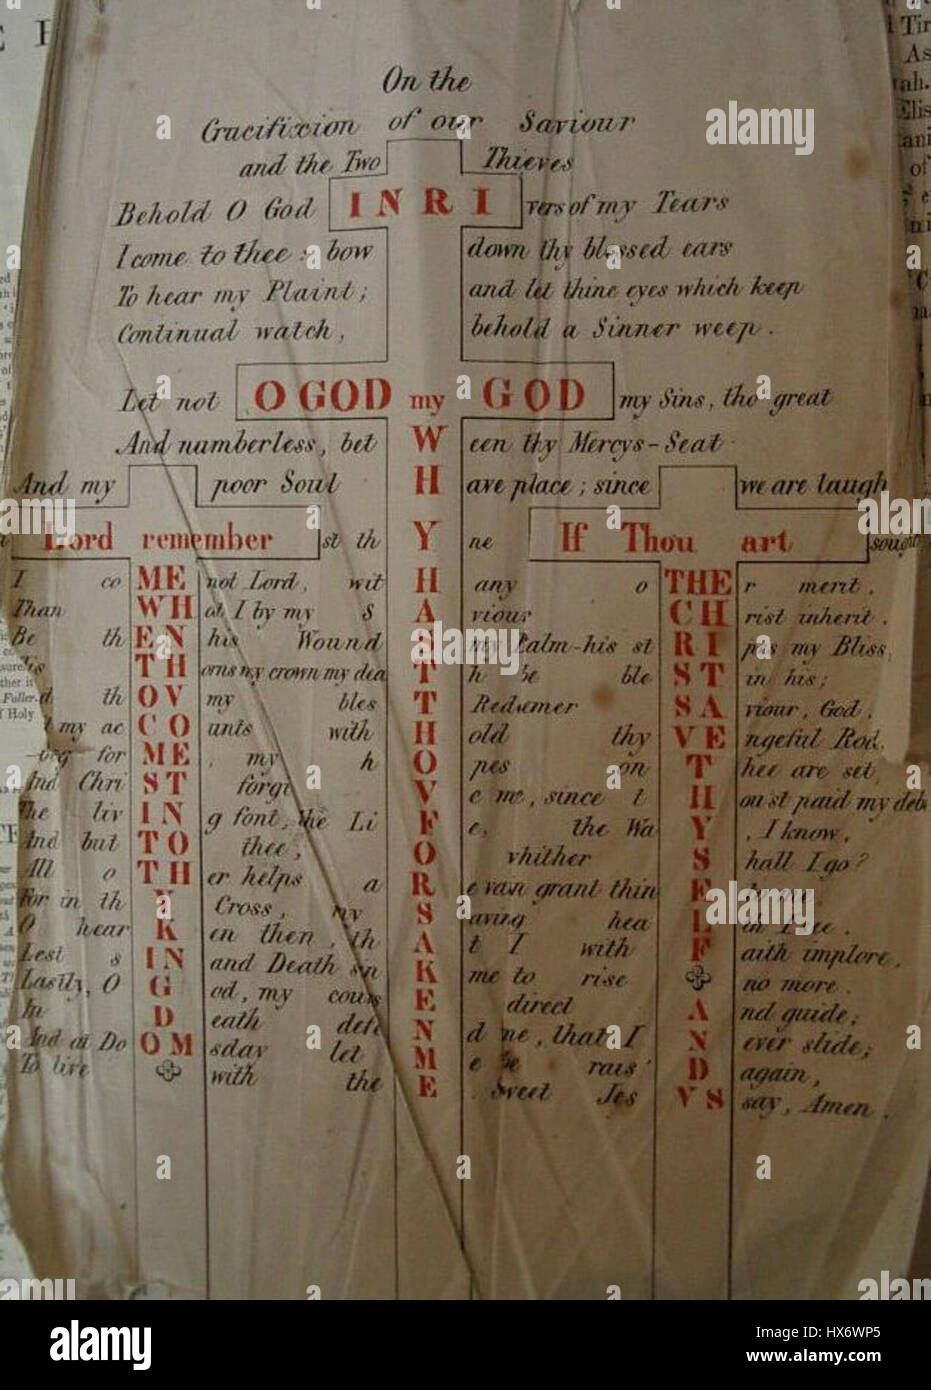 On the
Crucifixion of our Saviour
and the Two Thieves
Behold O God INRI vers of my Tears
I come to thee; bow down thy blessed ears
To hear my Plaint; and let thine eyes which keep
Continual watch, behold a Sinner weep.
Let not O GOD my GOD my Sins, tho great
And numberless, bet W een thy Mercys-Seat
And my poor Soul H ave place; since we are taugh
Lord remember st th Y ne If Thou art sought
I co ME not Lord, wit H any o THE r merit,
Than WH at I by my S A viour CH rist inherit.
Be th EN his Wound S my Balm-his st RI pes my Bliss,
TH orns my crown my dea T h be ble ST in his;
th OV my bles T Redeemer SA viour, God,
my ac CO unts with H old thy VE ngeful Rod,
beg for ME, my h O pes on T hee are set,
And Chri ST forgi V e me, since t H ou'st paid my deb
The liv IN g font, the Li F e, the Wa Y, I know,
And but TO thee, O whither S hall I go?
All o TH er helps a R e vain grant thin E to me,
For in th Y Cross, my S aving hea L th I see.
O hear K en then, th A t I with F aith implore,
Lest s IN and Death sin K me to rise no more.
Lastly, O G od, my cours E direct A nd guide;
In D eath defe N d me, that I N ever slide;
And at Do OM sday let M e be rais' D again,
To live with the E Sweet Jes VS say, Amen.
alamy
alamy
Image ID: HX6WP5
www.alamy.com